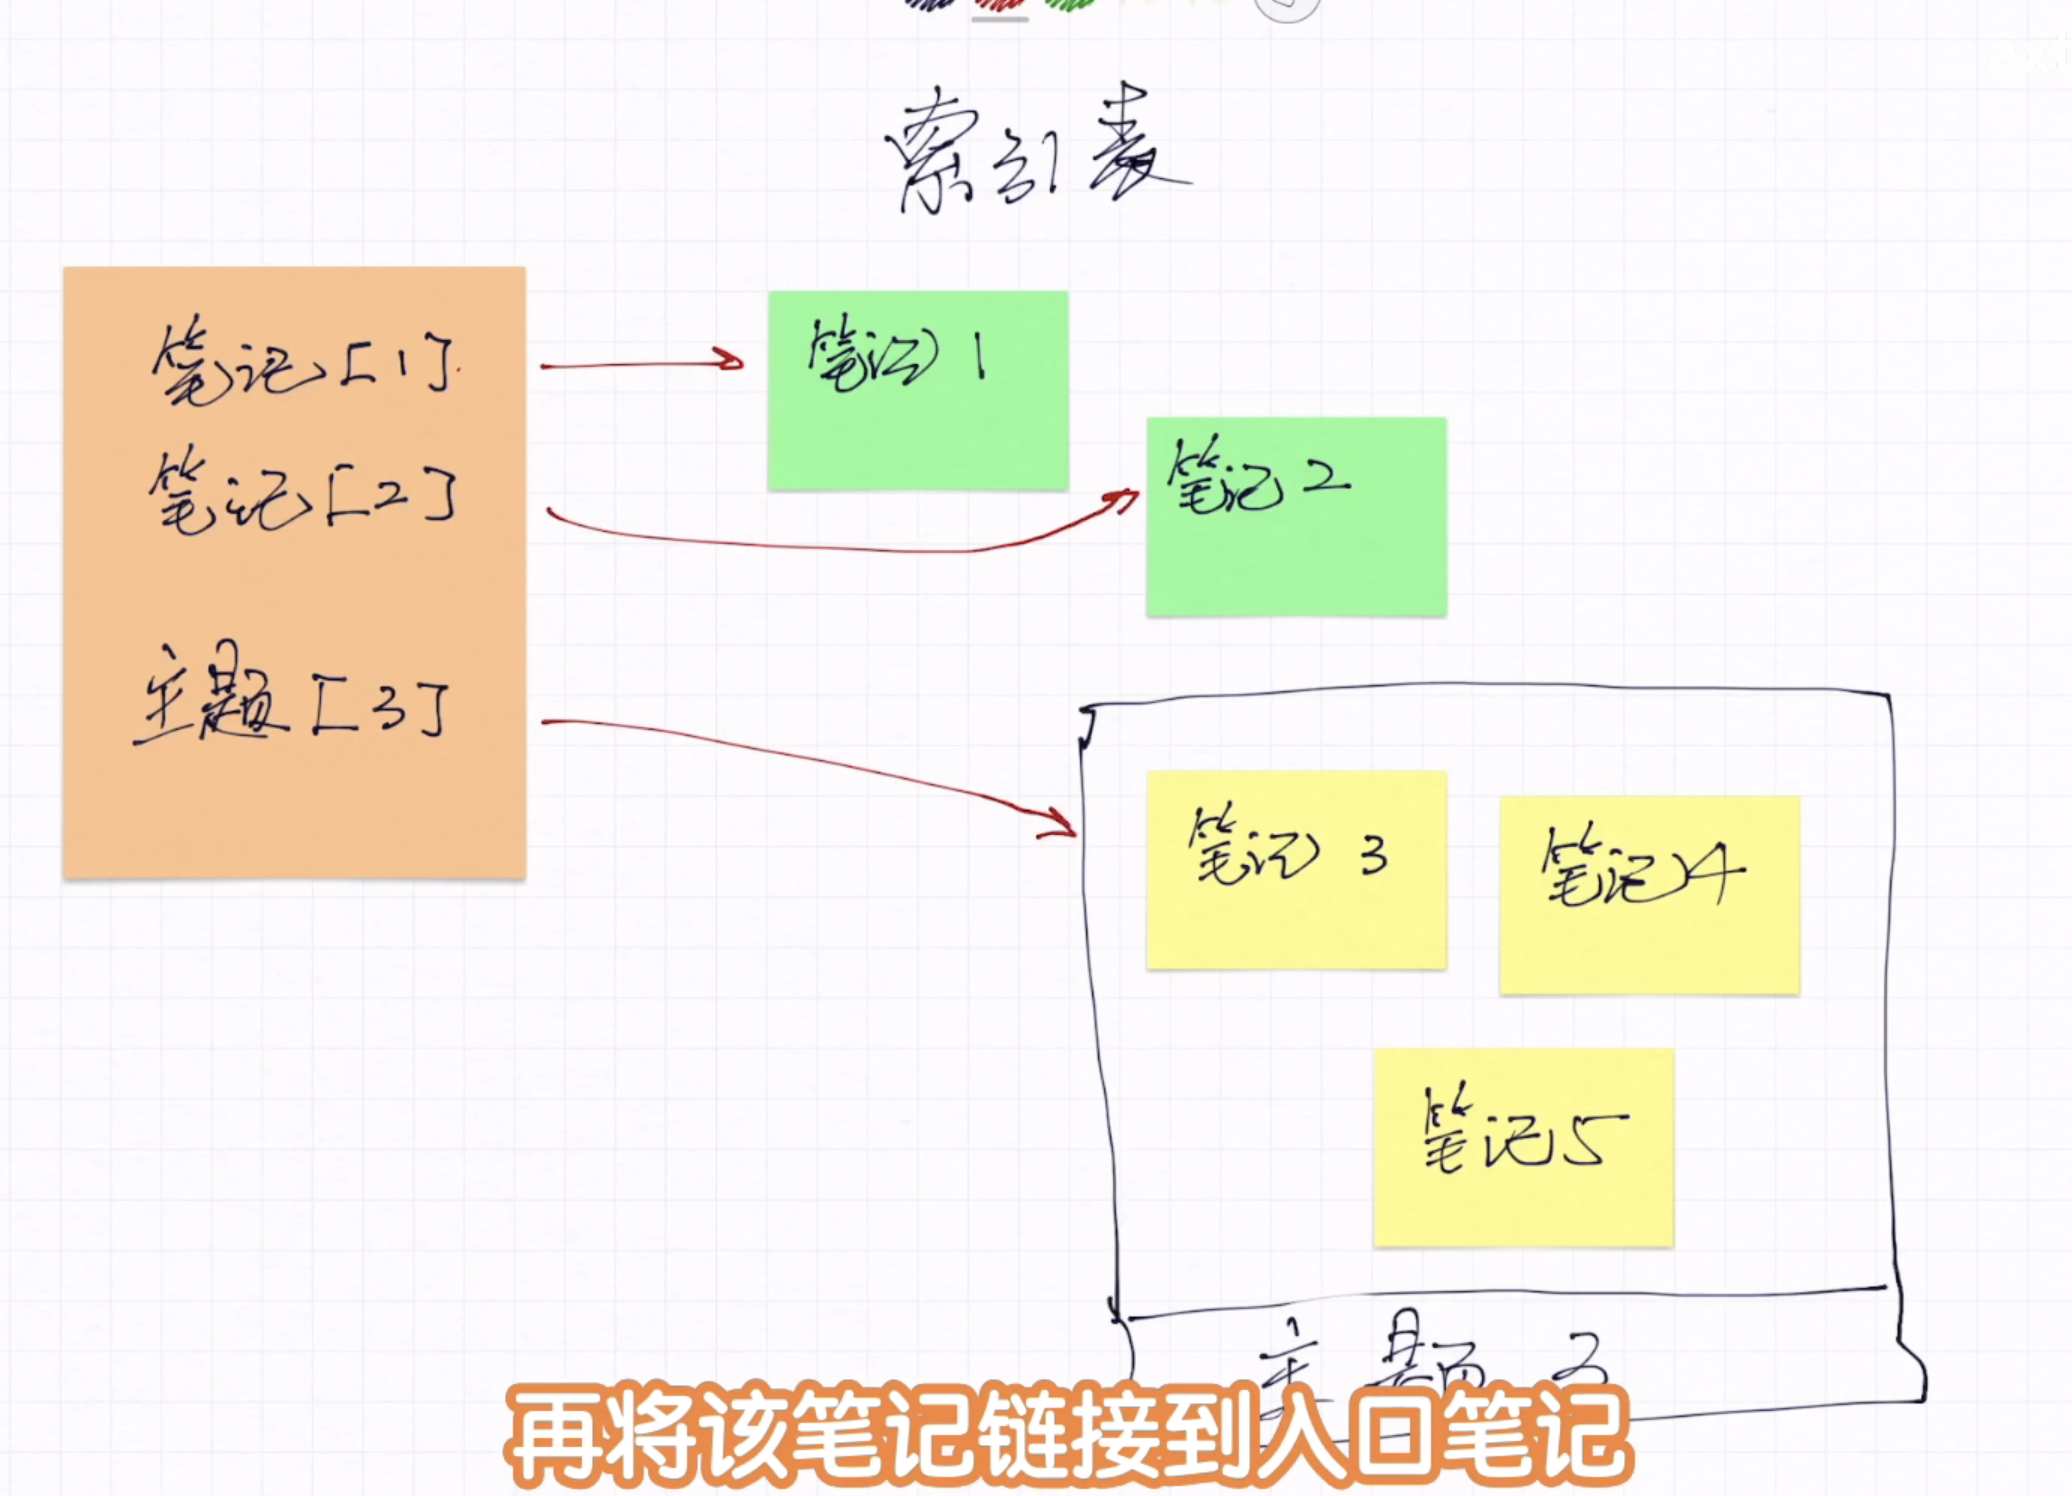 索引表
笔记[1]
笔记[2]
主题[3]
笔记1
笔记2
笔记3
笔记4
笔记5
主题3
再将该笔记链接到入口笔记